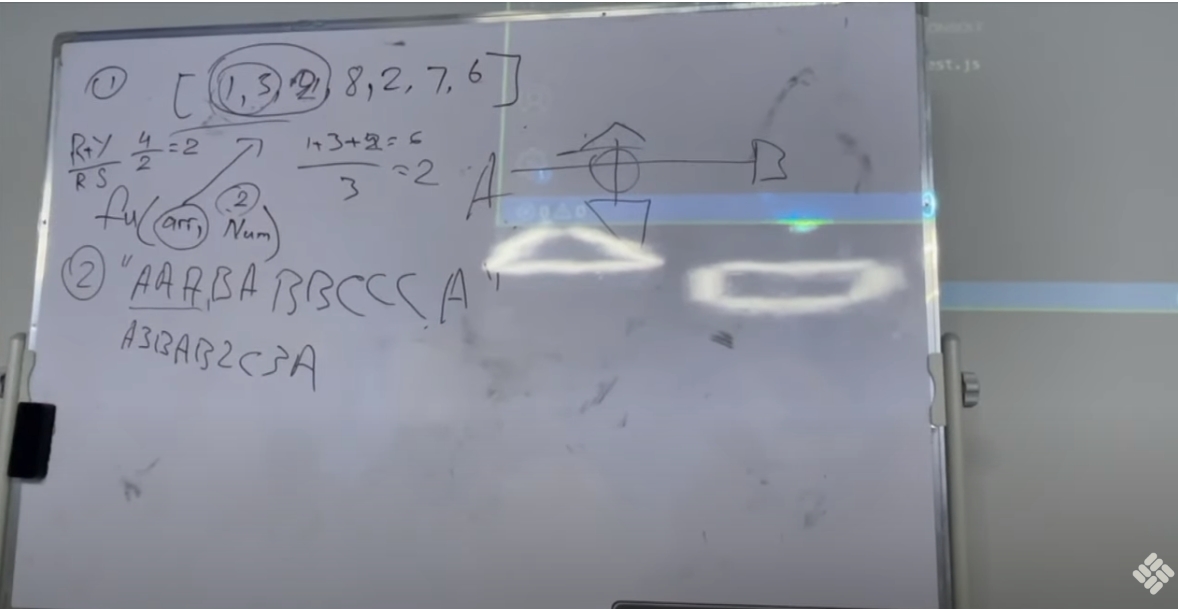 ① [1, 3, 2, 8, 2, 7, 6]
R+Y 4/2 = 2
RS
1+3+2 = 6
3 = 2
A B
2
fu(arr, Num)
② "AAABABBCCCA"
A3BAB2C3A
est.js